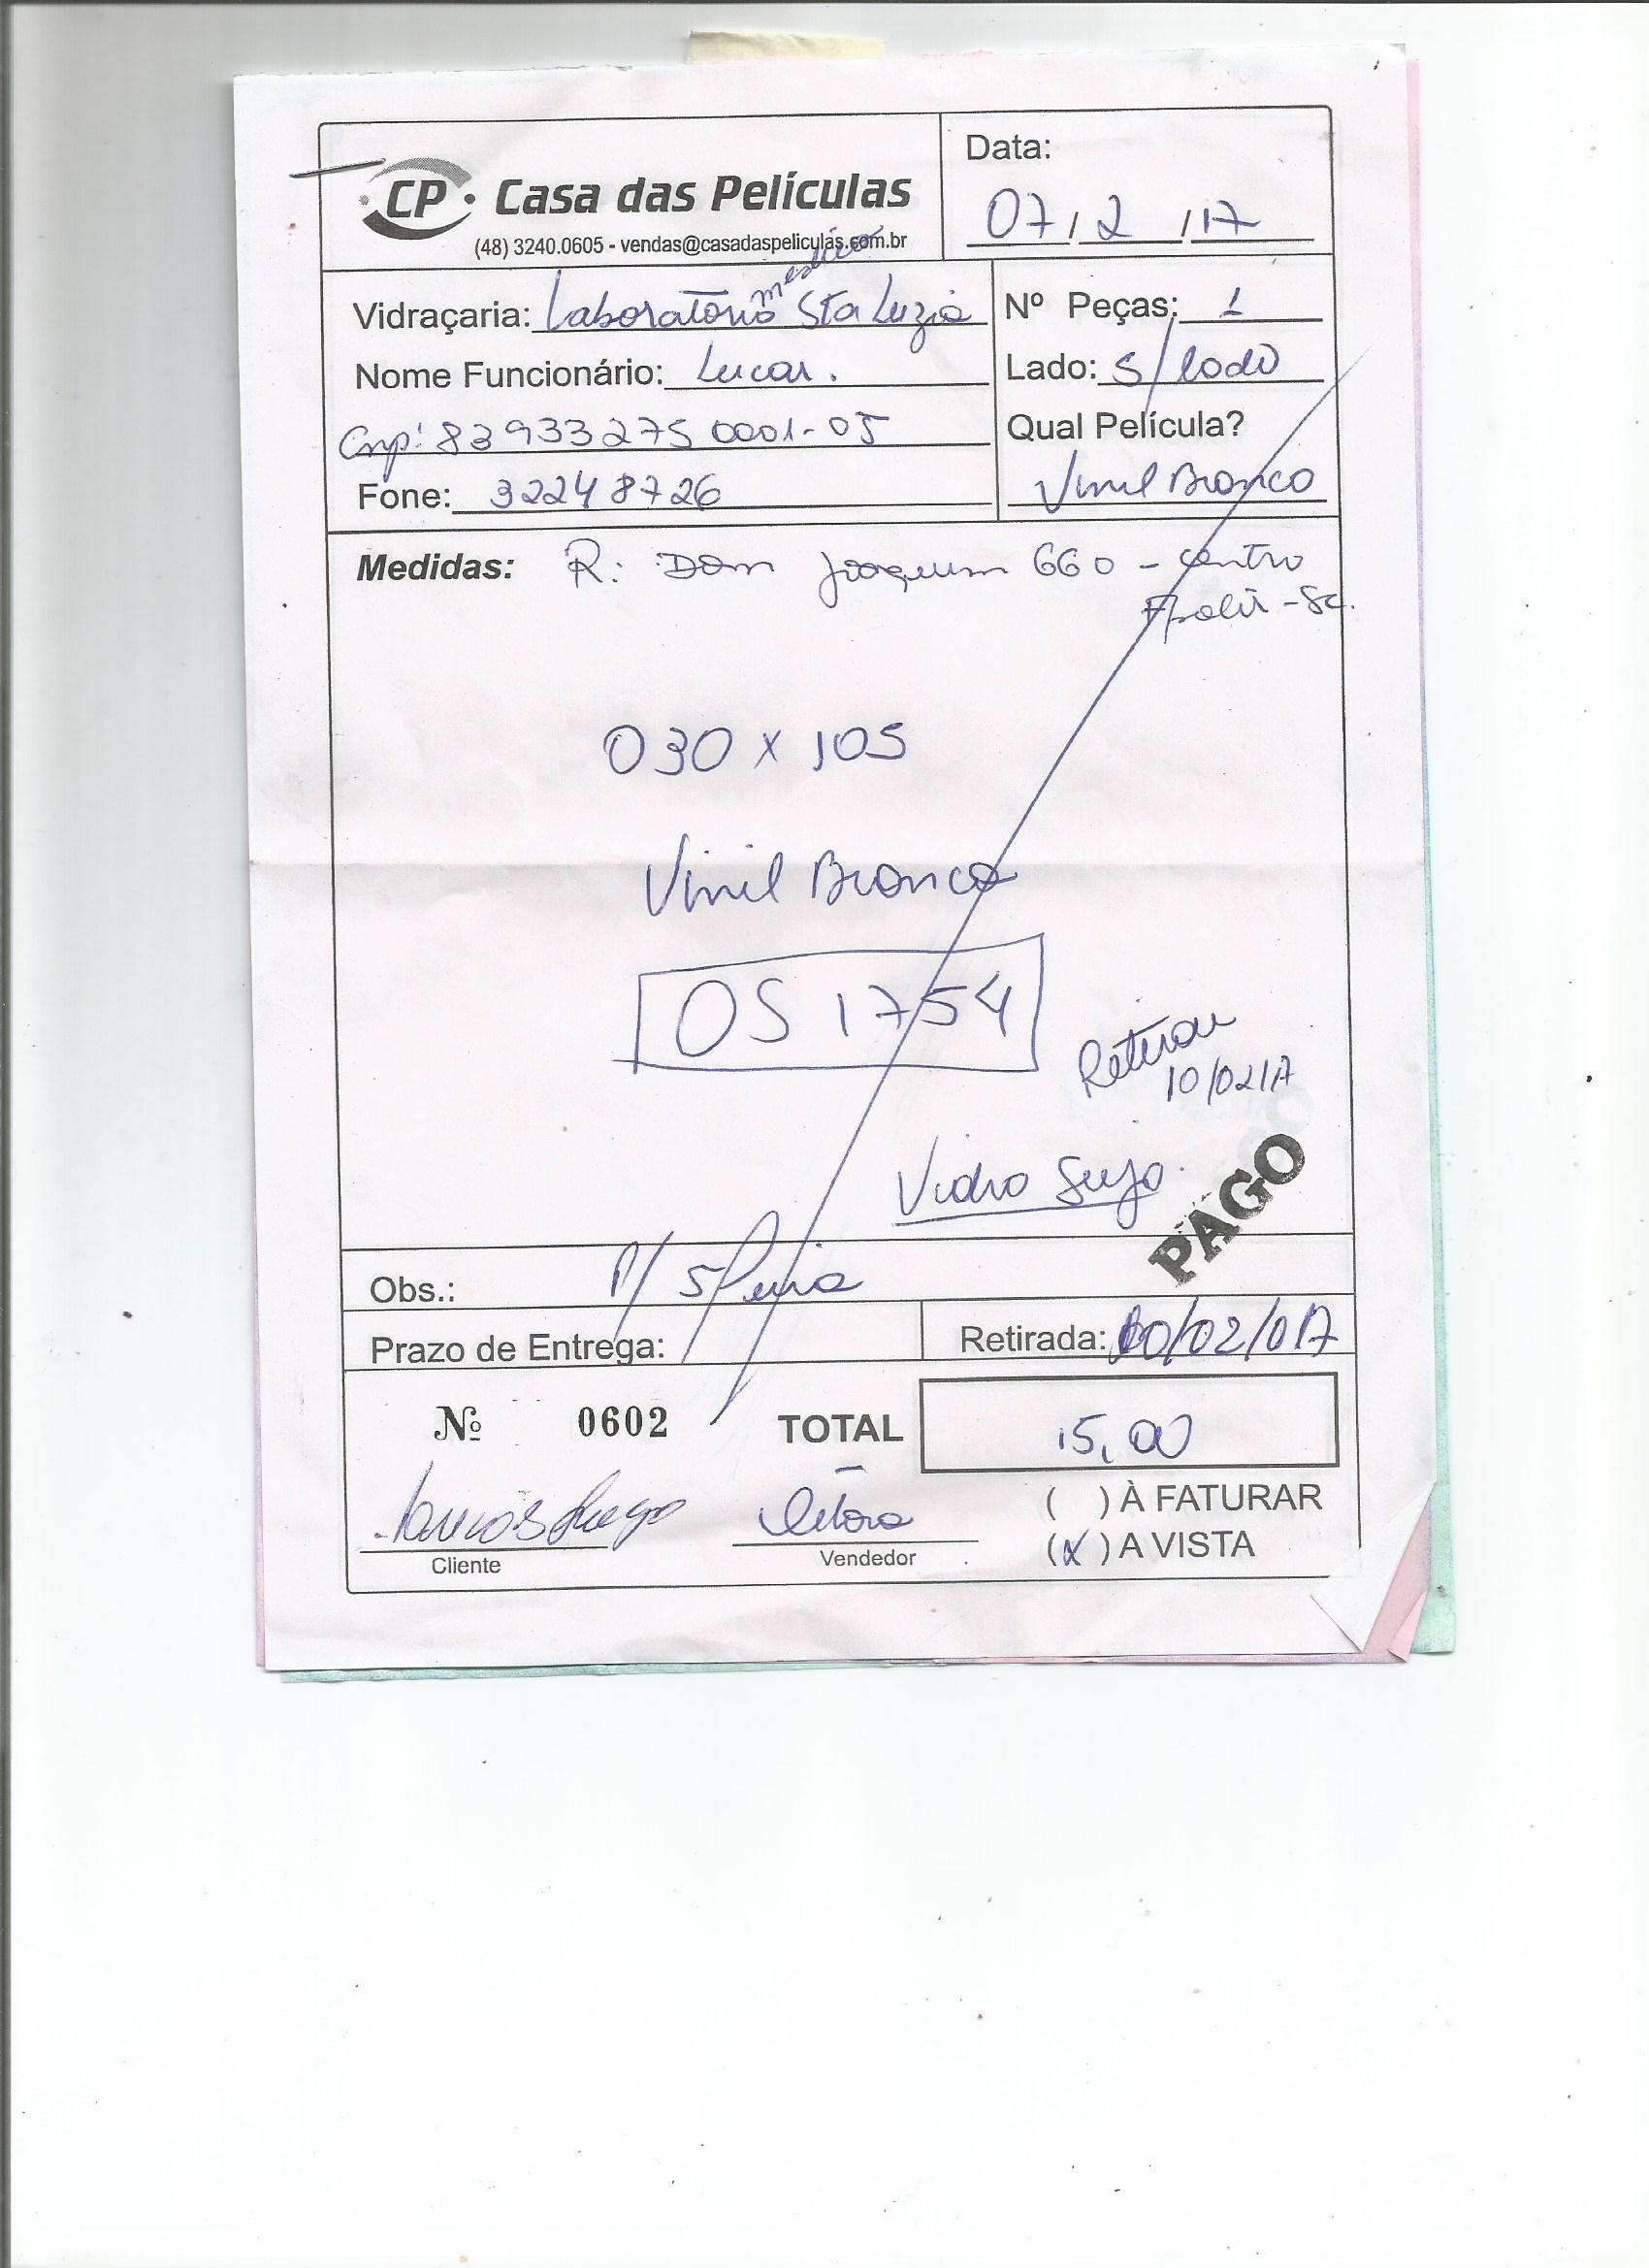 CP Casa das Películas
(48) 3240.0605 - vendas@casadaspeliculas.com.br
Data:
07/2/17
médico
Vidraçaria: Laboratório Sta Luzia
Nº Peças: 1
Nome Funcionário: Lucas.
Lado: S/lado
Cnpj: 83933275 0001-05
Qual Película?
Fone: 32248726
Vinil Branco
Medidas: R: Dom Joaquim 660 - centro
Fpolis - Sc.
030 x 105
Vinil Branco
OS 1754
Retirou
10/02/17
Vidro Sujo.
PAGO
Obs.: P/ 5ª feira
Prazo de Entrega:
Retirada: 10/02/017
Nº 0602
TOTAL 15,00
( ) À FATURAR
(X) A VISTA
Cliente
Vendedor